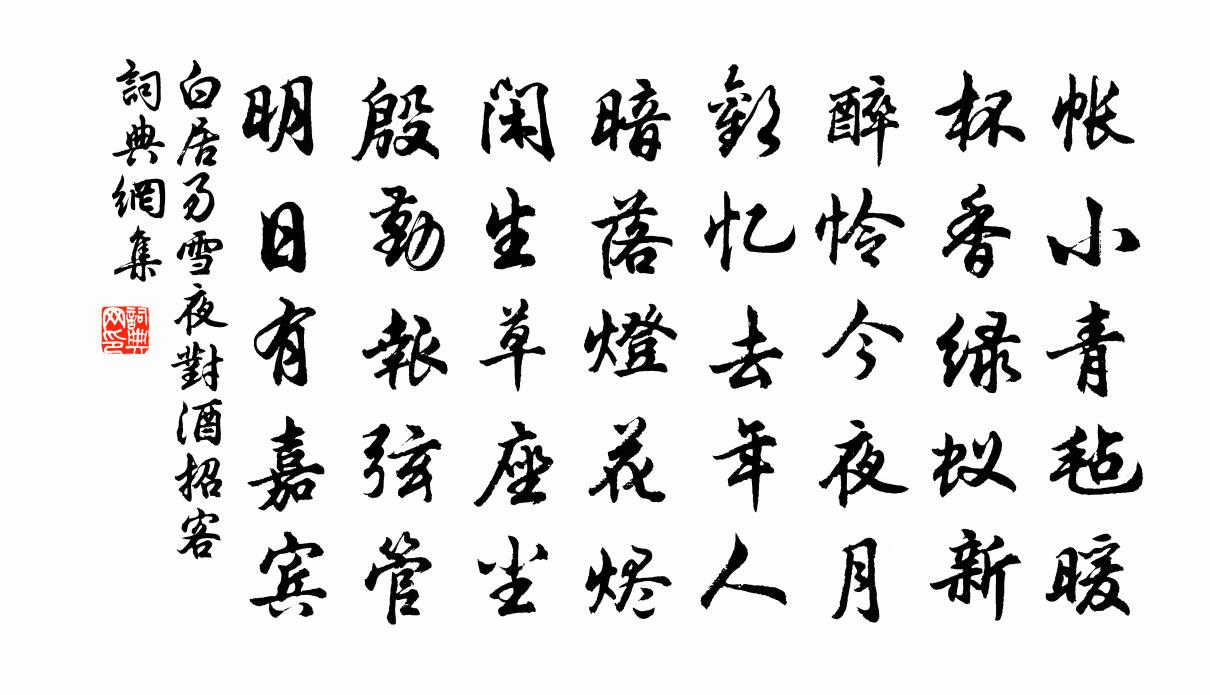 帐小青毡暖
杯香绿蚁新
醉怜今夜月
歡忆去年人
暗落燈花烬
闲生草座尘
殷勤報弦管
明日有嘉宾
白居易雪夜對酒招客
詞典網集
詞典
网印